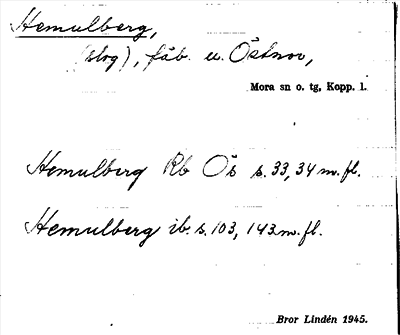 Hemulberg,
(skog), fäb. u. Östnor,
Mora sn o. tg, Kopp. l.
Hemulberg Rb Ös s. 33, 34 m. fl.
Hemulberg ib. s. 103, 143 m. fl.
Bror Lindén 1945.